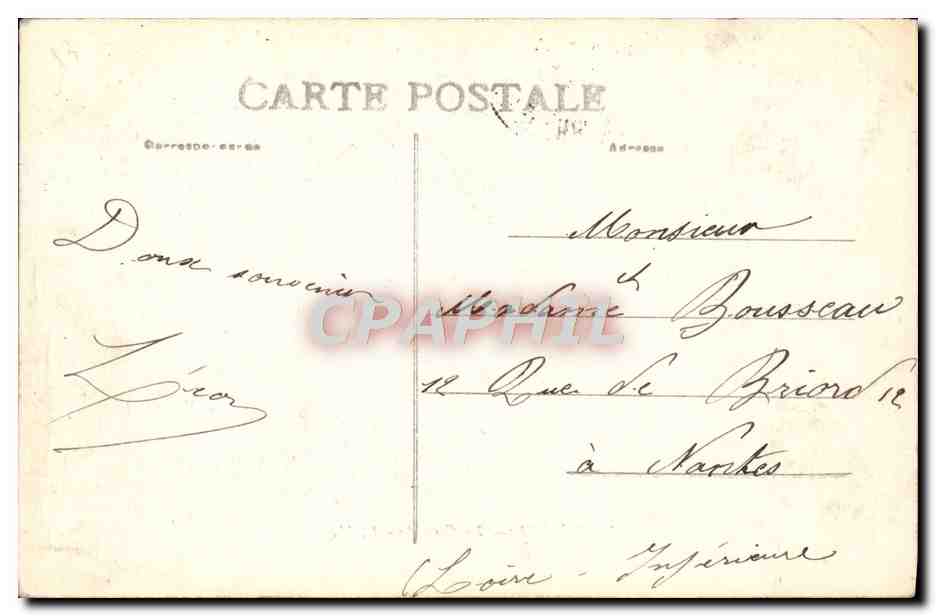 CARTE POSTALE
Correspondance
Adresse
Doux souvenir
Léon
Monsieur
et
Madame Bousseau
12 Rue de Briord 12
à Nantes
(Loire-Inférieure
CPAPHIL